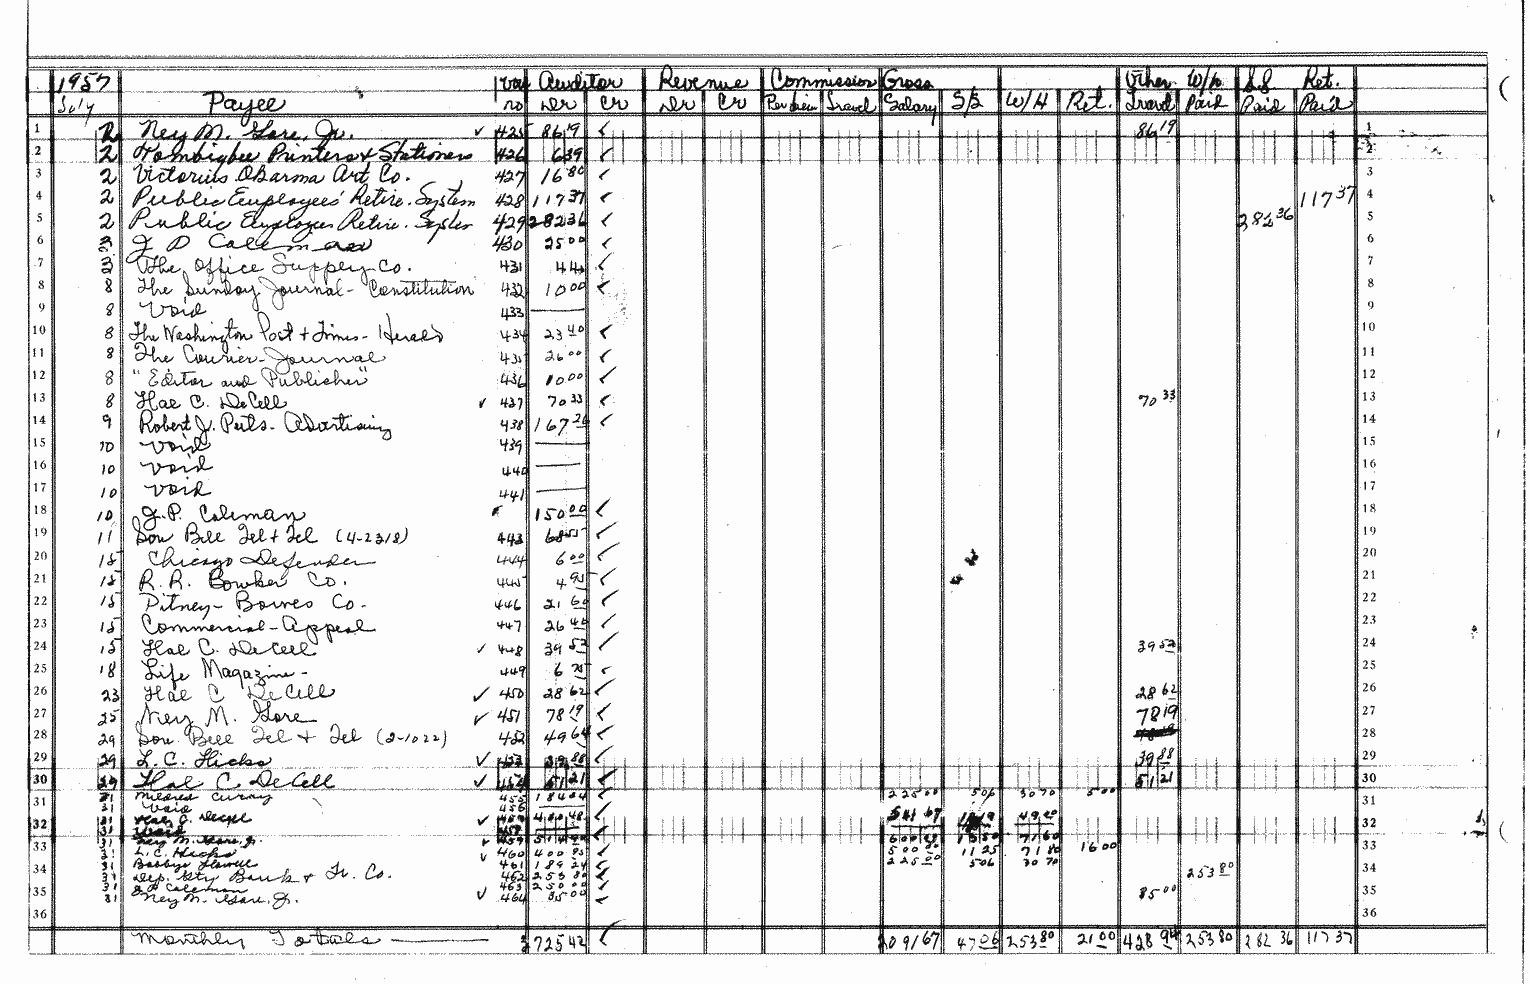 1957 Vou Auditor Revenue Commission Gross Other W/h S.S Ret.
July Payee no Dr Cr Dr Cr Per diem Travel Salary S/S W/H Ret. Travel Paid Paid Paid
1 2 Ney M. Gore, Jr. ✓ 425 86 19 ✓ 86 19 1
2 2 Tombigbee Printers & Stationers 426 6 39 ✓ 2
3 2 Victorius O'Barma Art Co. 427 16 80 ✓ 3
4 2 Public Employees' Retire. System 428 117 37 ✓ 117 37 4
5 2 Public Employees Retire. System 429 282 36 ✓ 282 36 5
6 3 J P Coleman 430 25 00 ✓ 6
7 3 The Office Supply Co. 431 ✓ 7
8 8 The Sunday Journal - Constitution 432 10 00 ✓ 8
9 8 Void 433 9
10 8 The Washington Post & Times - Herald 434 23 40 ✓ 10
11 8 The Courier - Journal 435 26 00 ✓ 11
12 8 "Editor and Publisher" 436 10 00 ✓ 12
13 8 Hal C. DeCell ✓ 437 70 33 ✓ 70 33 13
14 9 Robert J. - Advertising 438 167 26 ✓ 14
15 10 Void 439 15
16 10 Void 440 16
17 10 Void 441 17
18 10 J.P. Coleman 150 00 ✓ 18
19 11 Sou Bell Tel & Tel (4-2318) 443 68 55 ✓ 19
20 15 Chicago Defender 444 6 00 ✓ 20
21 15 R. R. Bowker Co. 445 4 95 ✓ 21
22 15 Pitney - Bowes Co. 446 21 60 ✓ 22
23 15 Commercial - Appeal 447 26 40 ✓ 23
24 15 Hal C. DeCell ✓ 448 39 53 ✓ 39 53 24
25 18 Life Magazine - 449 6 75 ✓ 25
26 23 Hal C DeCell ✓ 450 28 62 ✓ 28 62 26
27 25 Ney M. Gore ✓ 451 78 19 ✓ 78 19 27
28 29 Sou Bell Tel & Tel (2-1022) 452 49 64 ✓ 28
29 29 L. C. Hicks ✓ 453 39 88 ✓ 39 88 29
30 29 Hal C. DeCell ✓ 454 51 21 ✓ 51 21 30
31 31 Mildred Curry 455 184 24 225 00 5 06 30 70 5 00 31
31 Void 456
32 31 Hal C. DeCell ✓ 457 480 48 ✓ 541 67 49 00 32
31 Void 458
33 31 Ney M. Gore, Jr. ✓ 459 ✓ 600 00 13 50 71 60 33
31 L. C. Hicks ✓ 460 400 95 ✓ 500 00 11 25 71 80 16 00
34 31 Bobbye Howell 461 189 24 ✓ 225 00 5 06 30 70 34
31 Dep. Gty Bank & Tr. Co. 462 253 80 ✓ 253 80
35 31 J P Coleman 463 250 00 ✓ 35
31 Ney M. Gore, Jr. ✓ 464 85 00 ✓ 85 00
36 36
Monthly Totals 3725 42 ✓ 2091 67 47 06 253 80 21 00 428 94 253 80 282 36 117 37